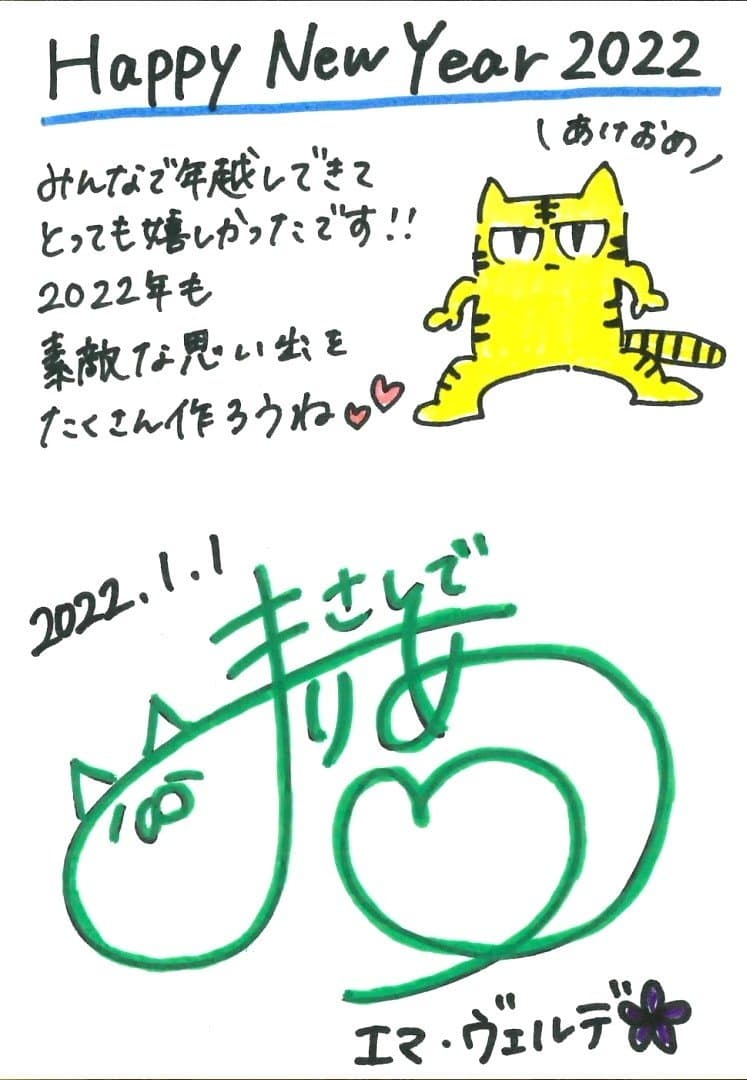 Happy New Year 2022
\あけおめ/
みんなで年越しできて
とっても嬉しかったです!!
2022年も
素敵な思い出を
たくさん作ろうね
2022.1.1
さしで
まりあ
エマ・ヴェルデ